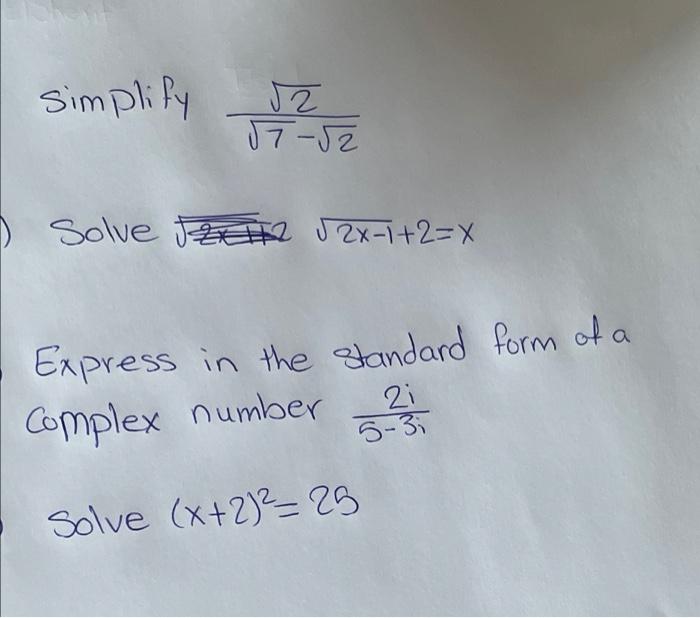 Simplify √2/(√7-√2)
) Solve √2x-1+2=x
Express in the standard form of a
Complex number 2i/(5-3i)
Solve (x+2)²=25